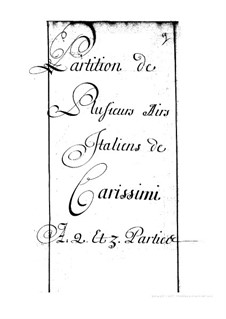 Partition de
Plusieurs Airs
Italiens de
Carissimi
A. 2. Et 3. Parties